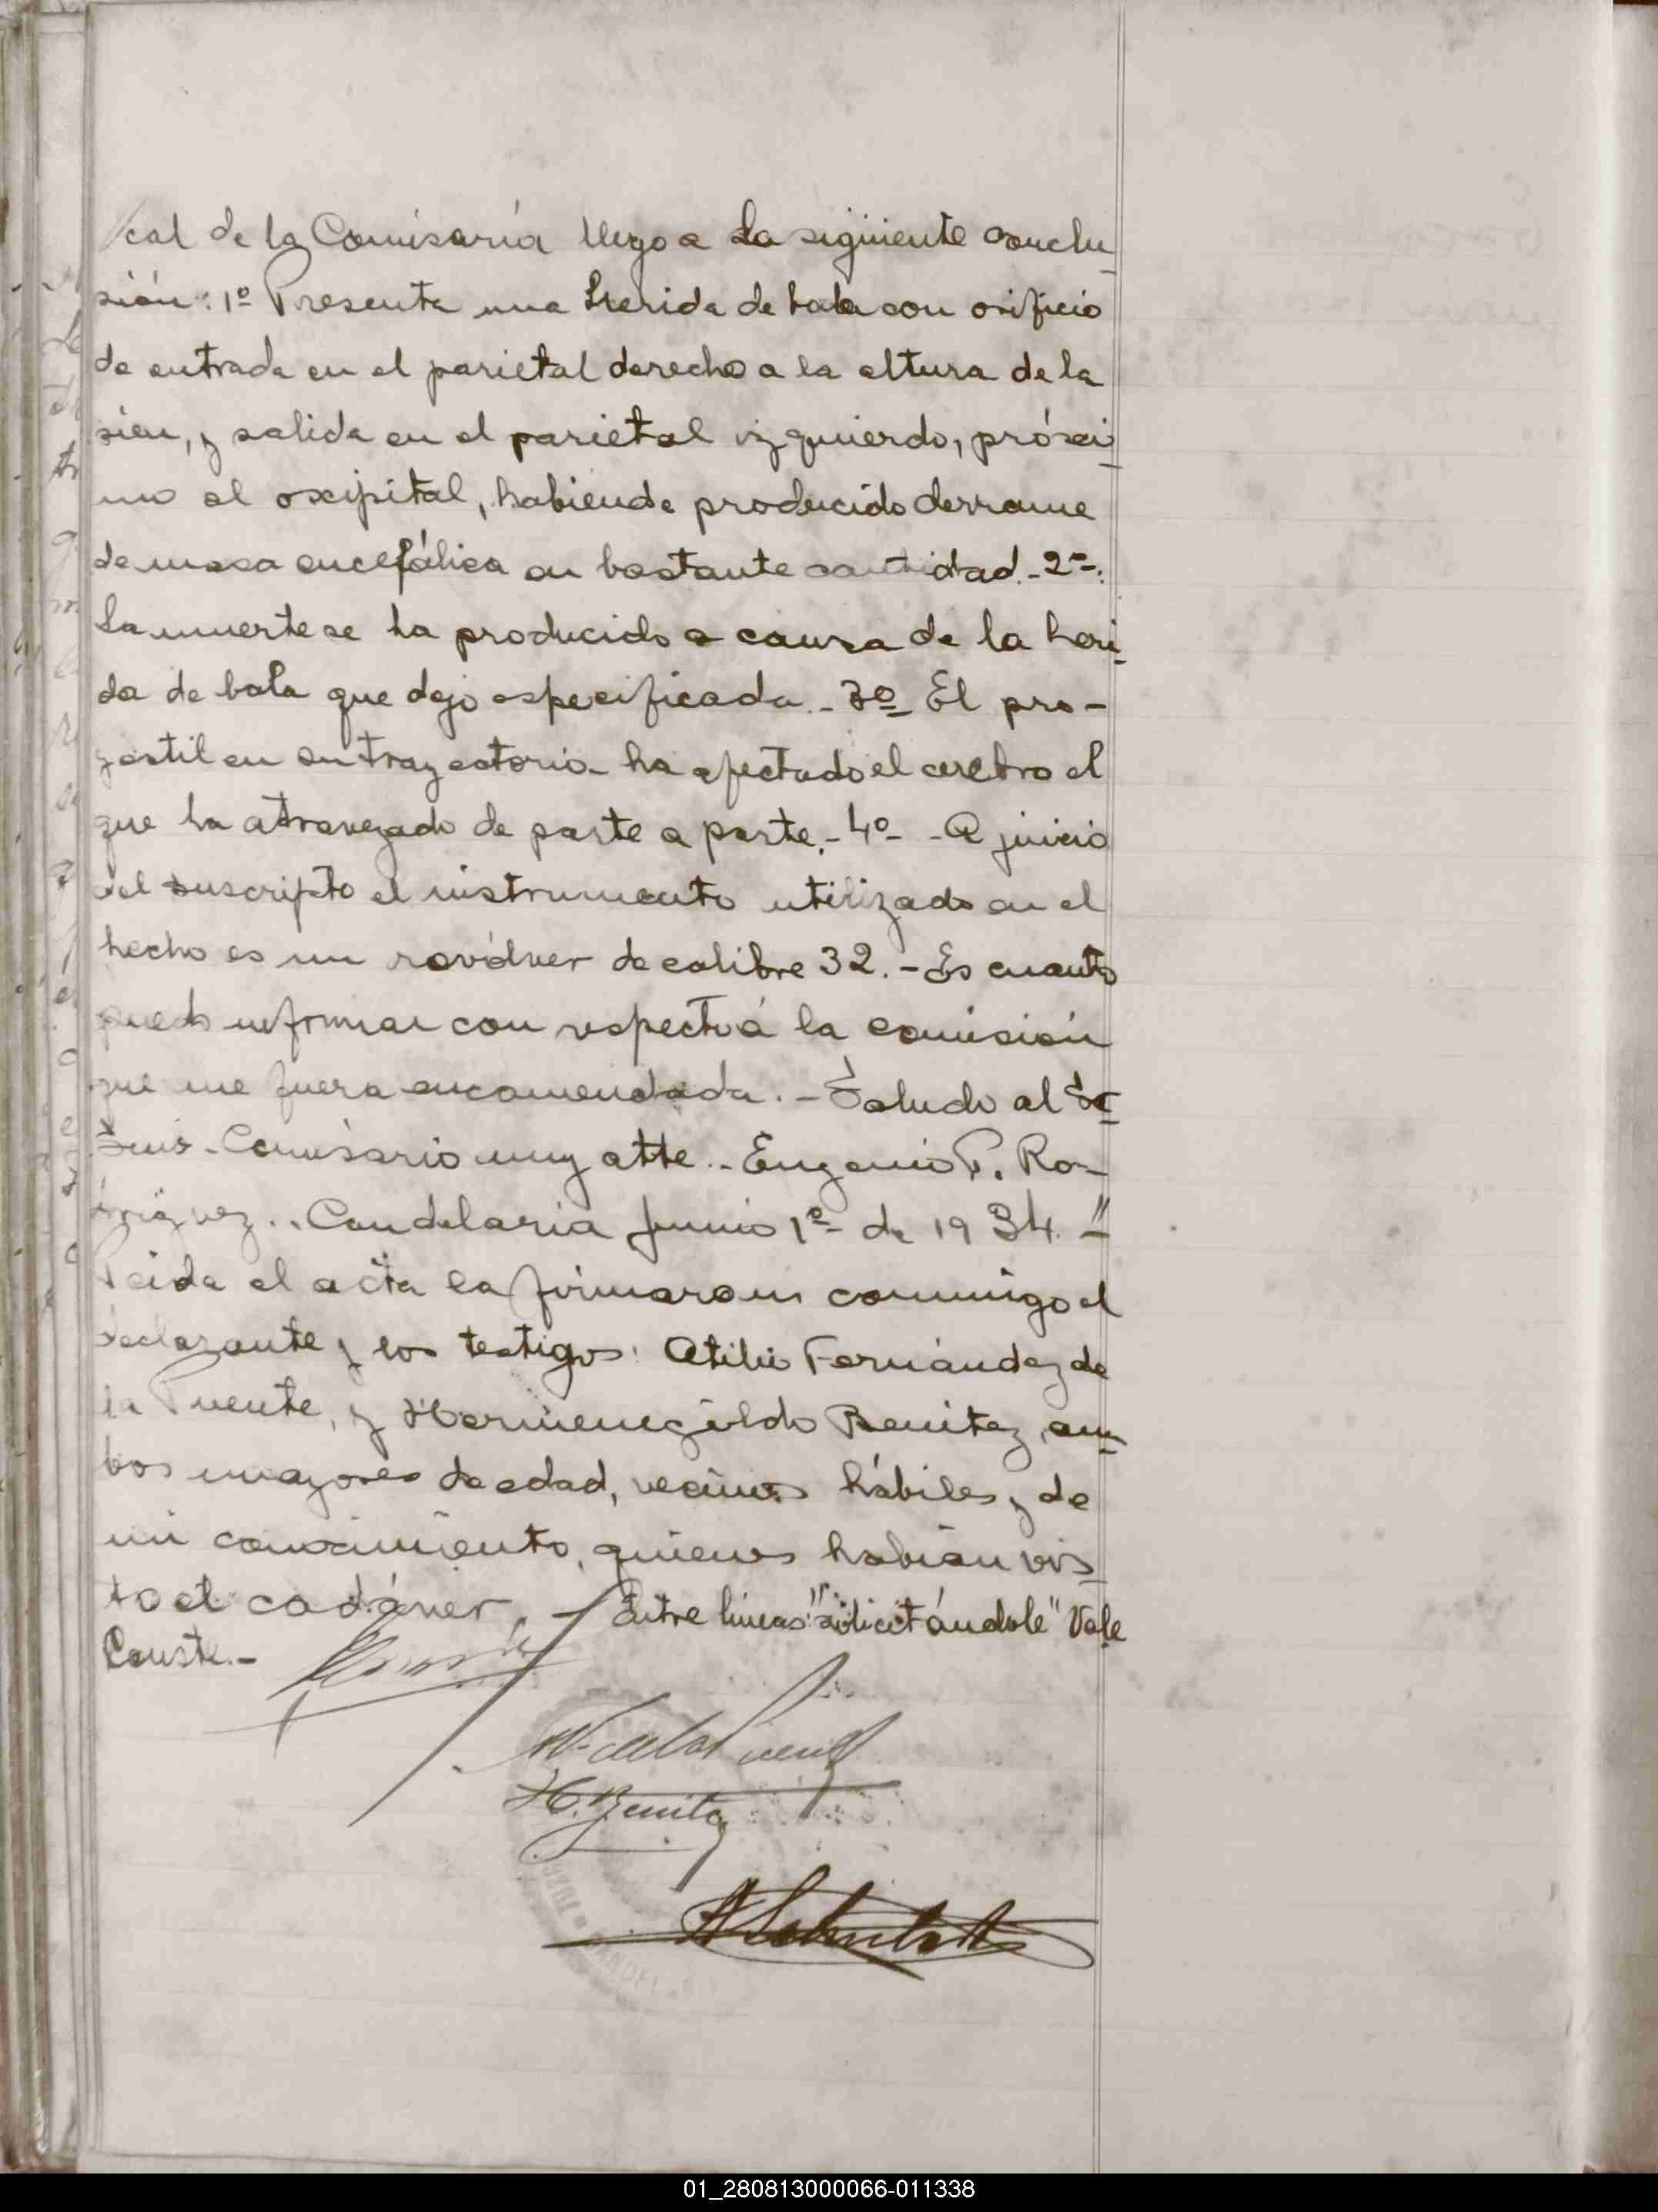 cal de la Comisaría llego a la siguiente conclu
sión: 1º Presenta una herida de bala con orificio
de entrada en el parietal derecho a la altura de la
sien, y salida en el parietal izquierdo, próxi
mo al oxipital, habiendo producido derrame
de masa encefálica en bastante cantidad.- 2º:
La muerte se ha producido a causa de la heri
da de bala que dejo especificada.- 3º El pro-
yectil en su trayectoria ha afectado el cerebro el
que ha atravezado de parte a parte.- 4º- A juicio
del suscripto el instrumento utilizado en el
hecho es un revólver de calibre 32.- Es cuanto
puedo informar con respecto á la comisión
que me fuera encomendada.- Saludo al Se
Comisario muy atte.- Eugenio P. Ro-
driguez.. Candelaria Junio 1º de 1934.-"
Leida el acta la firmaron conmigo el
declarante y los testigos: Atilio Fernández de
la Puente, y Hermenegildo Benitez, am
bos mayores de edad, vecinos hábiles y de
mi conocimiento, quienes habian vis
to el cadáver.- Entre lineas: "solicitándole" Vale
Conste.-
H. Benitez
01_280813000066-011338